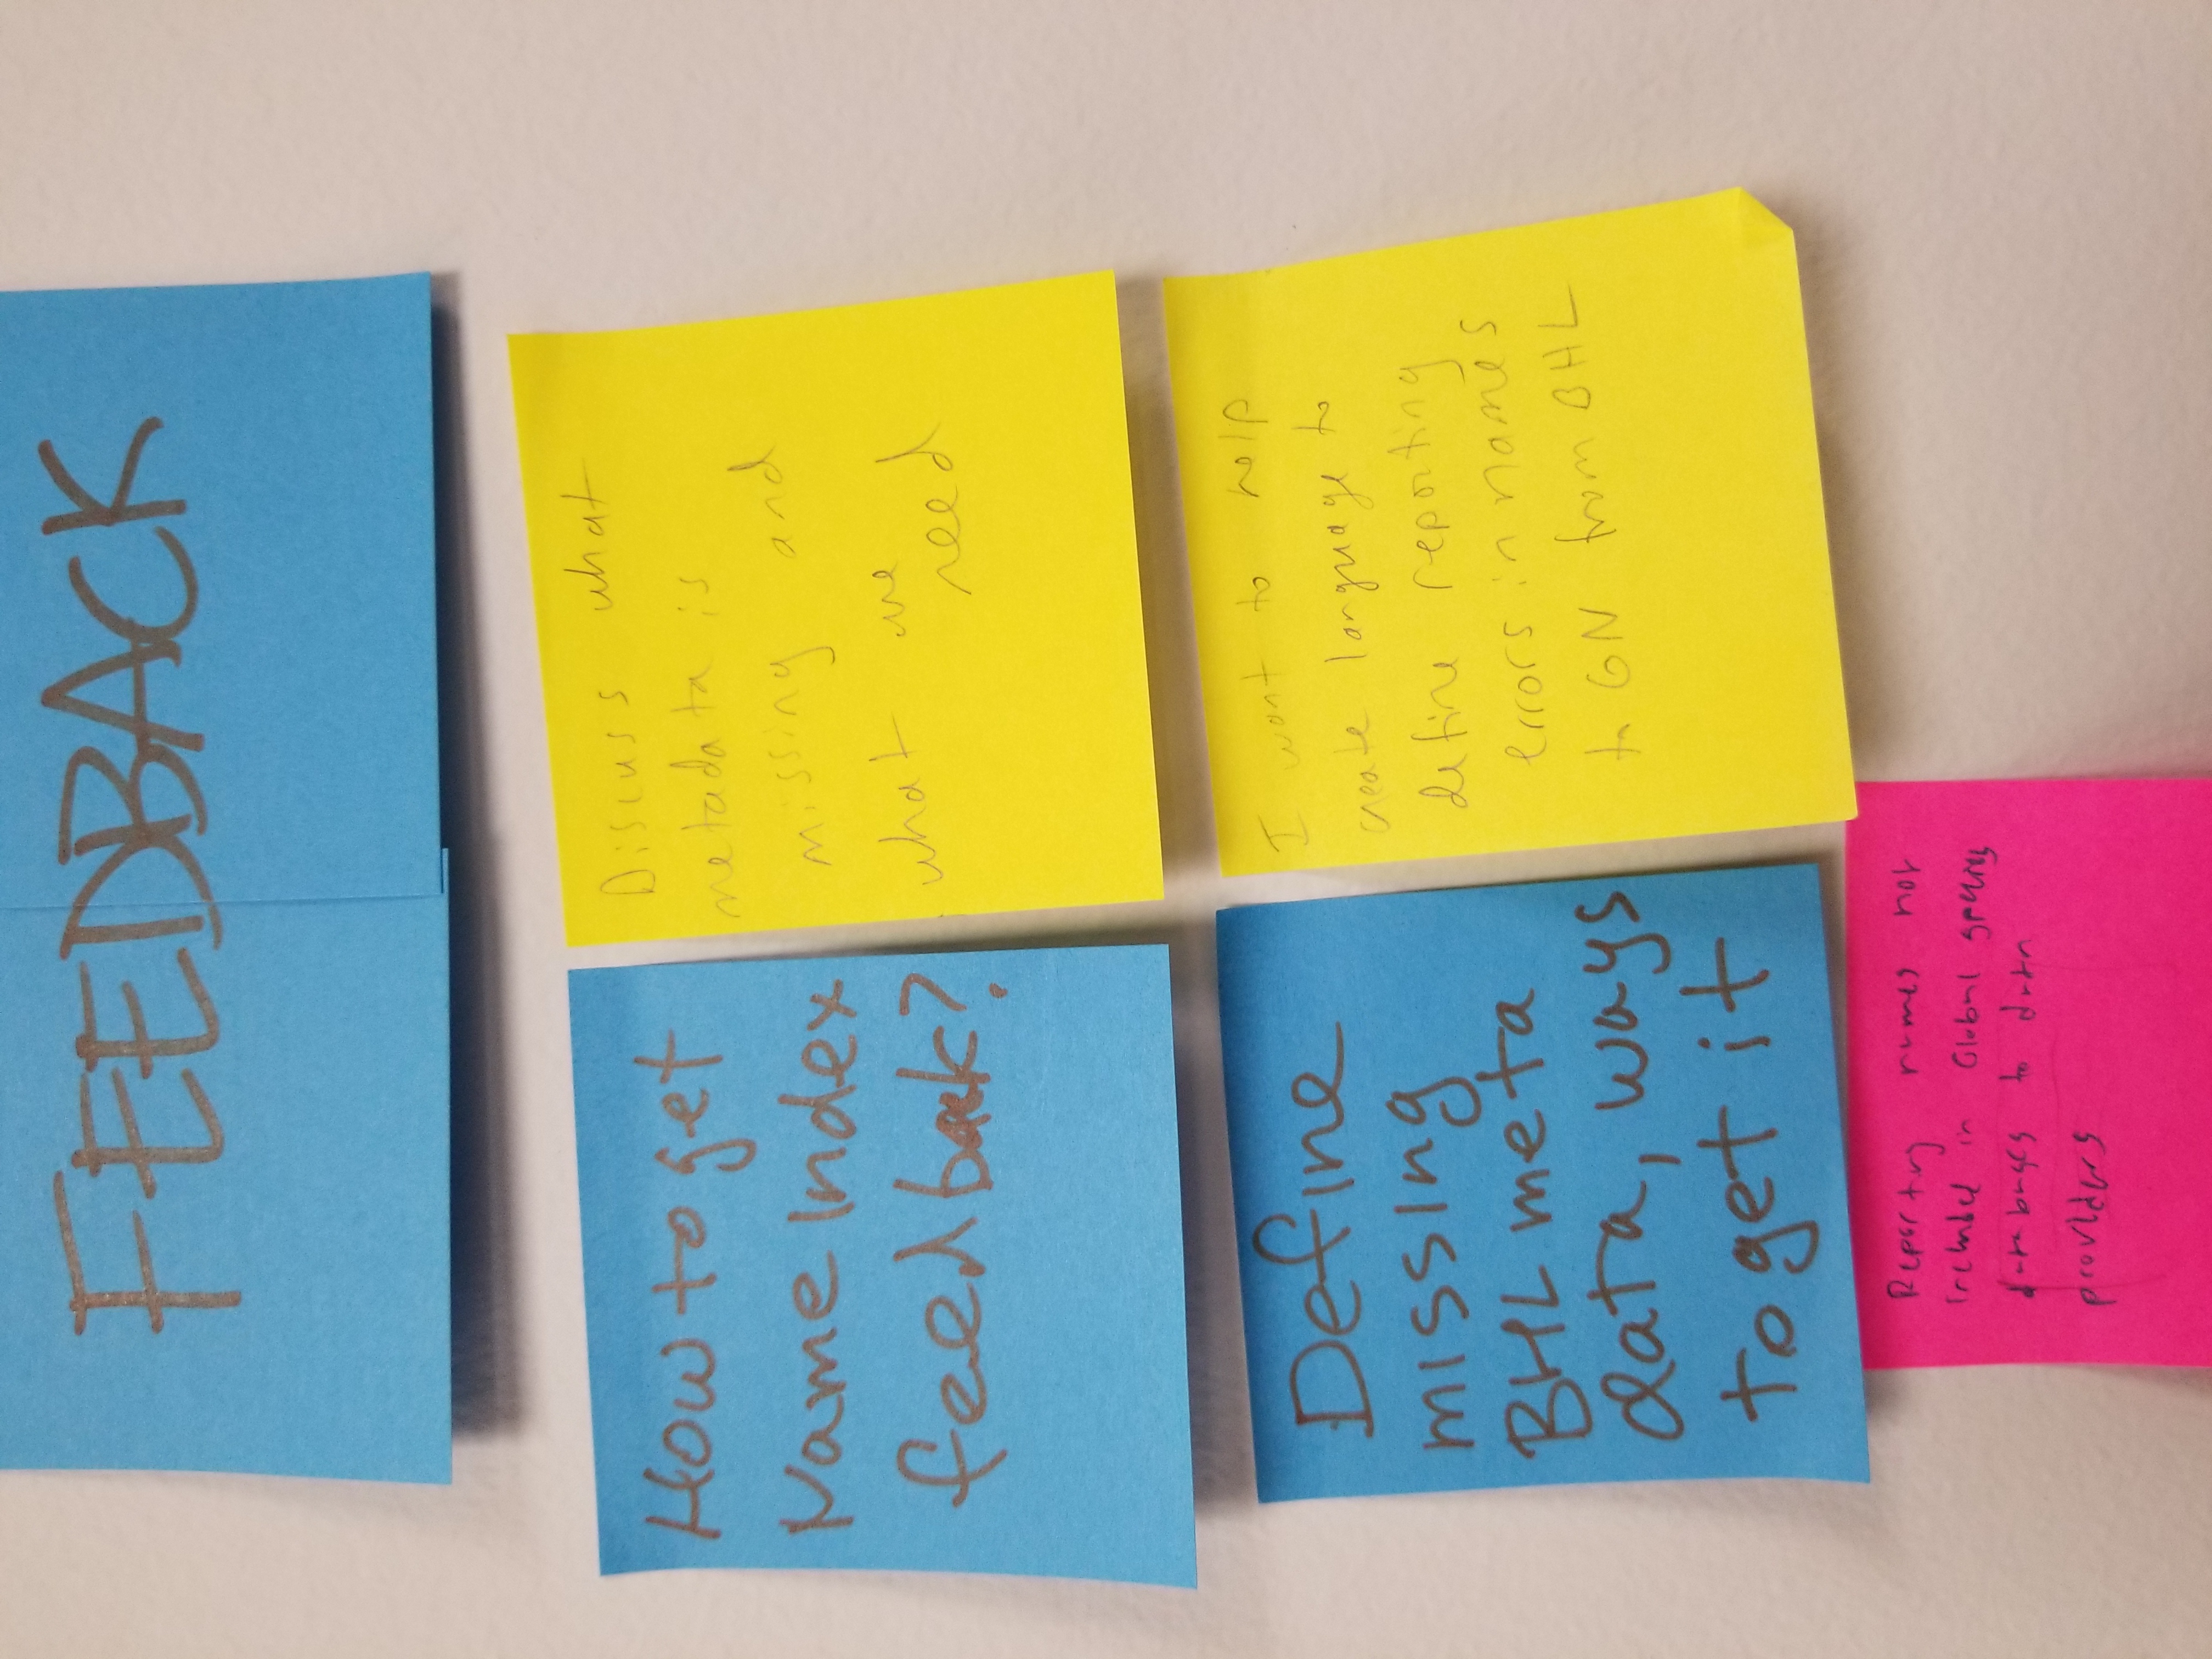 FEEDBACK
How to get
Name Index
feedback?
Discuss what
metadata is
missing and
what we
need
Define
missing
BHL meta
data, ways
to get it
I want to help
create language to
define reporting
errors in names
to GN from BHL
Reporting names not
included in Global species
databases to data
providers